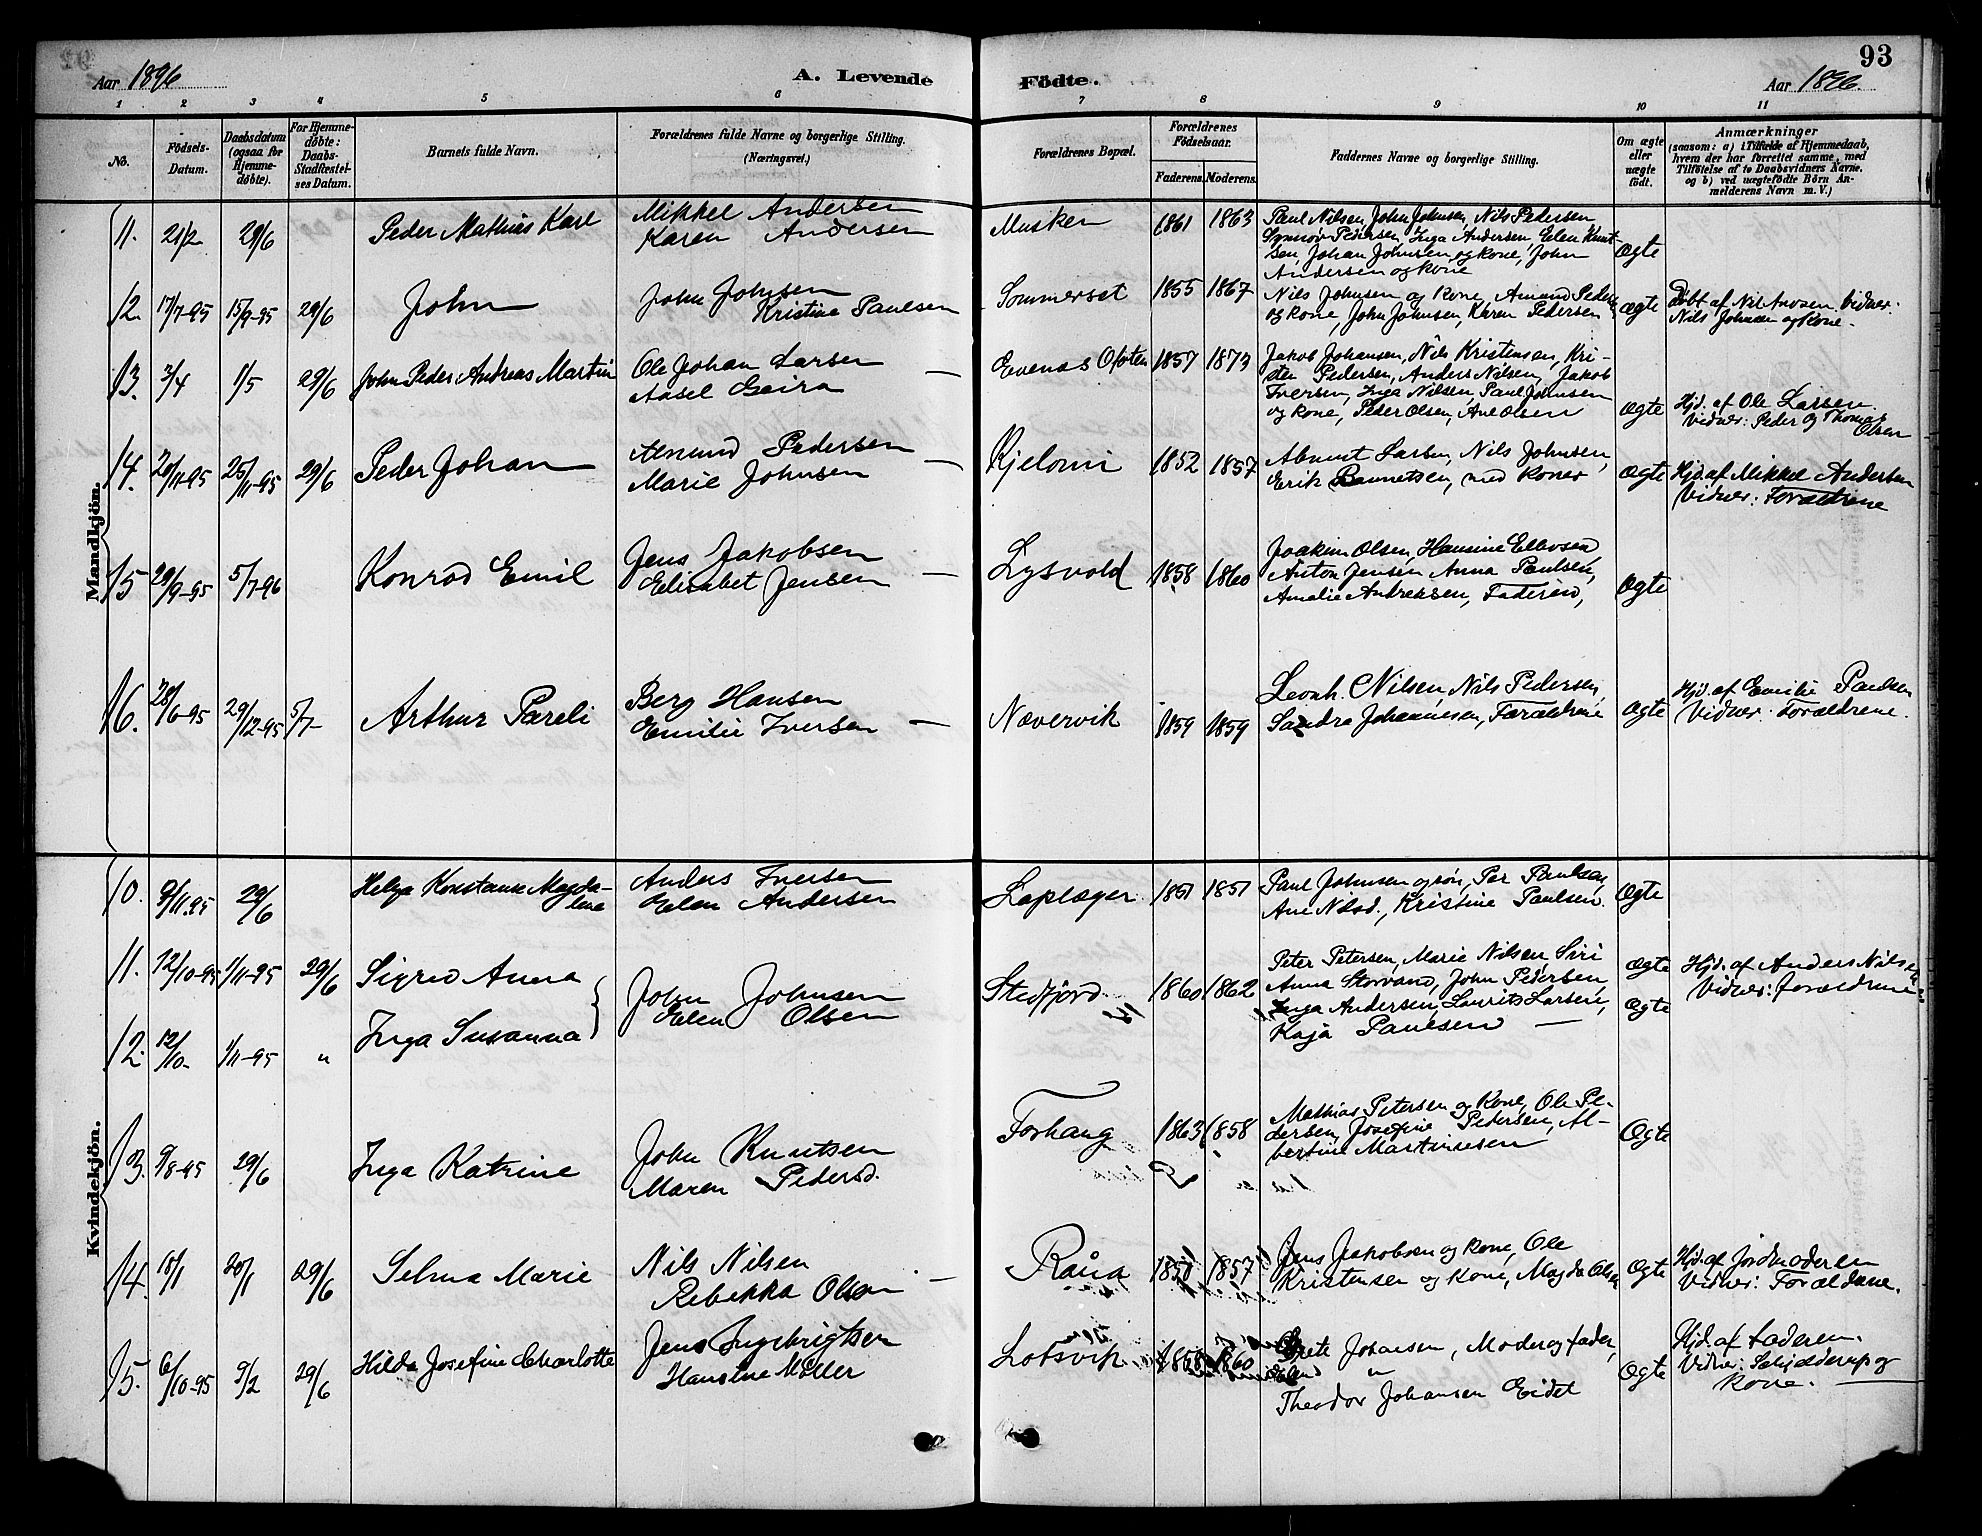 Aar 1896
A. Levende
Födte.
93
Aar 1896.
1 2 3 4 5 6 7 8 9 10 11
No.
Födsels-Datum.
Daabsdatum (ogsaa for Hjemme-döbte).
For Hjemme-döbte: Daabs-Stadfæstel-ses Datum.
Barnets fulde Navn.
Forældrenes fulde Navne og borgerlige Stilling. (Næringsvei.)
Forældrenes Bopæl.
Forældrenes Födselsaar.
Faderens. Moderens.
Faddernes Navne og borgerlige Stilling.
Om ægte eller uægte födt.
Anmærkninger
(saasom: a) i Tilfælde af Hjemmedaab, hvem der har forrettet samme, med Tilföielse af to Daabsvidners Navne. og b) ved uægtefödte Börn An-melderens Navn m. V.)
Mandkjön.
11. 21/2 29/6 Peder Mathias Karl
Mikkel Andersen
Karen Andersen
Musken 1861 1863
Paul Nilsen, John Johnsen, Nils Pedersen
Pedersen, Inga Andersen, Elen Knut-
sen, Johan Johnsen og kone, John
Andersen og kone
Ægte
12. 17/7-95 15/9-95 29/6 John
John Johnsen
Kristine Paulsen
Sommerset 1855 1867
Nils Johnsen og Kone, Amund Peders
og kone, John Johnsen, Karen Pedersen
Ægte
Döbt af Vidner:
Nils Johnsen og Kone.
13. 3/4 1/5 29/6 John Peder Andreas Martin
Ole Johan Larsen
Aasel Geira
Evenas Ofoten 1857 1873
Jakob Johansen, Nils Kristensen, Kri-
sten Pedersen, Anders Nilsen, Jakob
Iversen, Inga Nilsen, Paul Johnsen
og kone, Peder Olsen, Ane Olsen
Ægte
Hjd. af Ole Larsen.
Vidner: Peder og Thomas
Olsen
14. 20/11-95 25/11-95 29/6 Peder Johan
Amund Pedersen
Marie Johnsen
Kjelomi 1852 1857
Larsen, Nils Johnsen,
Erik med Koner
Ægte
Hjd. af Mikkel Andersen
Vidner: Forældrene
15 29/9-95 5/7-96 Konrad Emil
Jens Jakobsen
Elisabet Jensen
Lysvold 1858 1860
Joakim Olsen, Hansine
Anton Jensen Anna Paulsen,
Amalie Andreasen, Faderen,
Ægte
16. 28/6-95 29/12-95 5/7- Arthur Pareli
Berg Hansen
Emilie Iversen
Nævervik 1859 1859
Leonh. Nilsen Nils Pedersen
Sandra Johannesen, Forældrene
Ægte
Hjd. af Emilie Paulsen
Vidner: Forældrene.
Kvindekjön.
10. 9/11.95 29/6 Helga Konstanse Magda-
lena
Anders Iversen
Elen Andersen
Laplæger 1851 1851
Paul Johnsen og sön, Per Paulsen,
Ane Nilsd., Kristine Paulsen.
Ægte
11. 12/10-95 1/11-95 29/6 Sigrid Anna
John Johnsen
Elen Olsen
Stedfjord 1860 1862
Peter Petersen, Marie Nilsen, Siri
Anna Storvand, John Pedersen
Inga Andersen, Laurits Larsen,
Kaja Paulsen
Ægte
Ægte
Hjd. af Anders Nilsen
Vidner: Forældrene
12. 12/10- 1/11-95 " Inga Susanna
13. 9/8-95 29/6 Inga Katrine
John Knutsen
Maren Pedersd.
Forhang 1863 1858
Mathias Petersen og Kone, Ole Pe-
dersen, Josefine Pedersen, Al-
bertine Martinusen
Ægte
14. 15/1 20/1 29/6 Selma Marie
Nils Nilsen
Rebekka Olsen
Råna 1857
Jens Jakobsen og kone, Ole
Kristensen og Kone, Magda Olsen
Ægte
Hjd. af Jordmoderen
Vidner: Forældrene.
15. 6/10-95 9/2 29/6 Hilda Josefine Charlotte
Jens Ingebrigtsen
Hansine Möller
Lotsvik 1868 1860
Grete Johansen, Moder og fader,
"
Theodor Johansen Eidet
Ægte
Hjd. af Faderen.
Vidner: Schjelderup og
Kone.